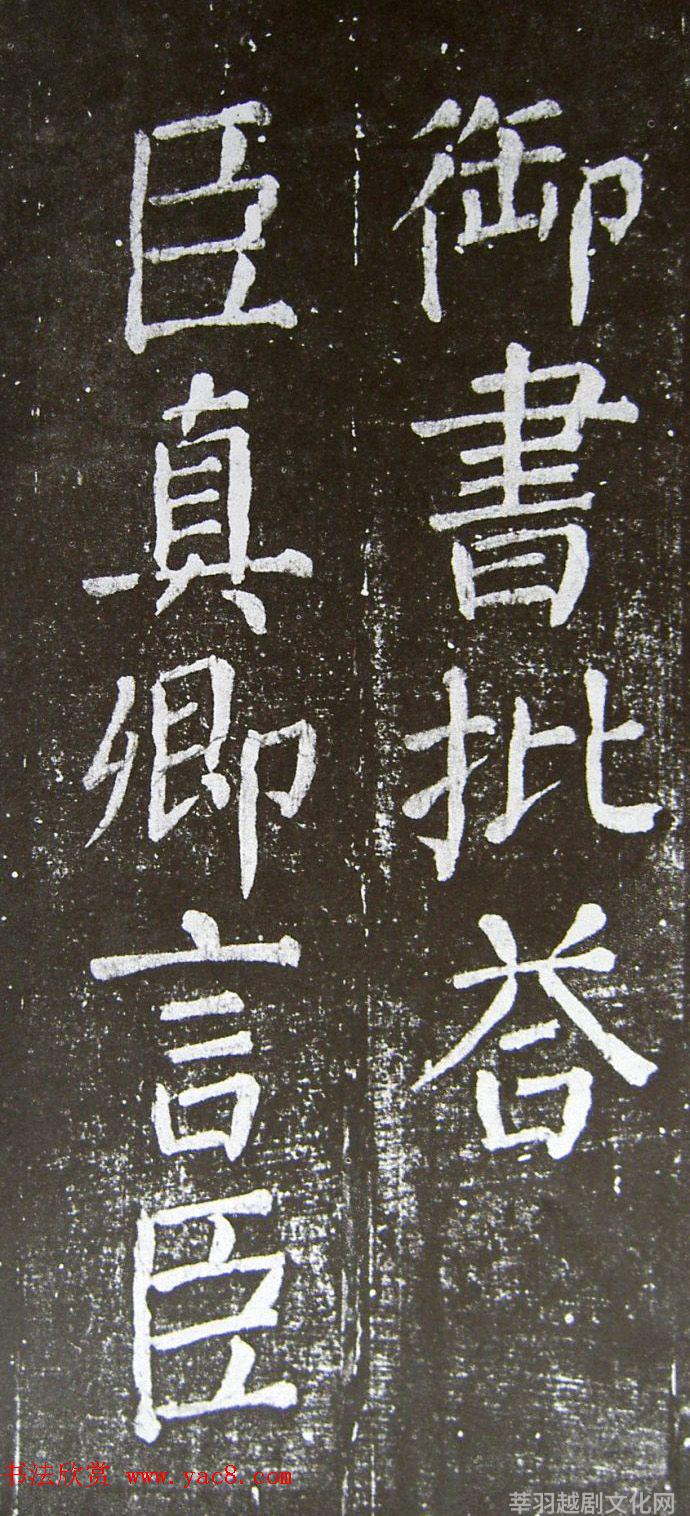 御書批荅
臣真卿言臣
书法欣赏 www.yac8.com
莘羽越剧文化网